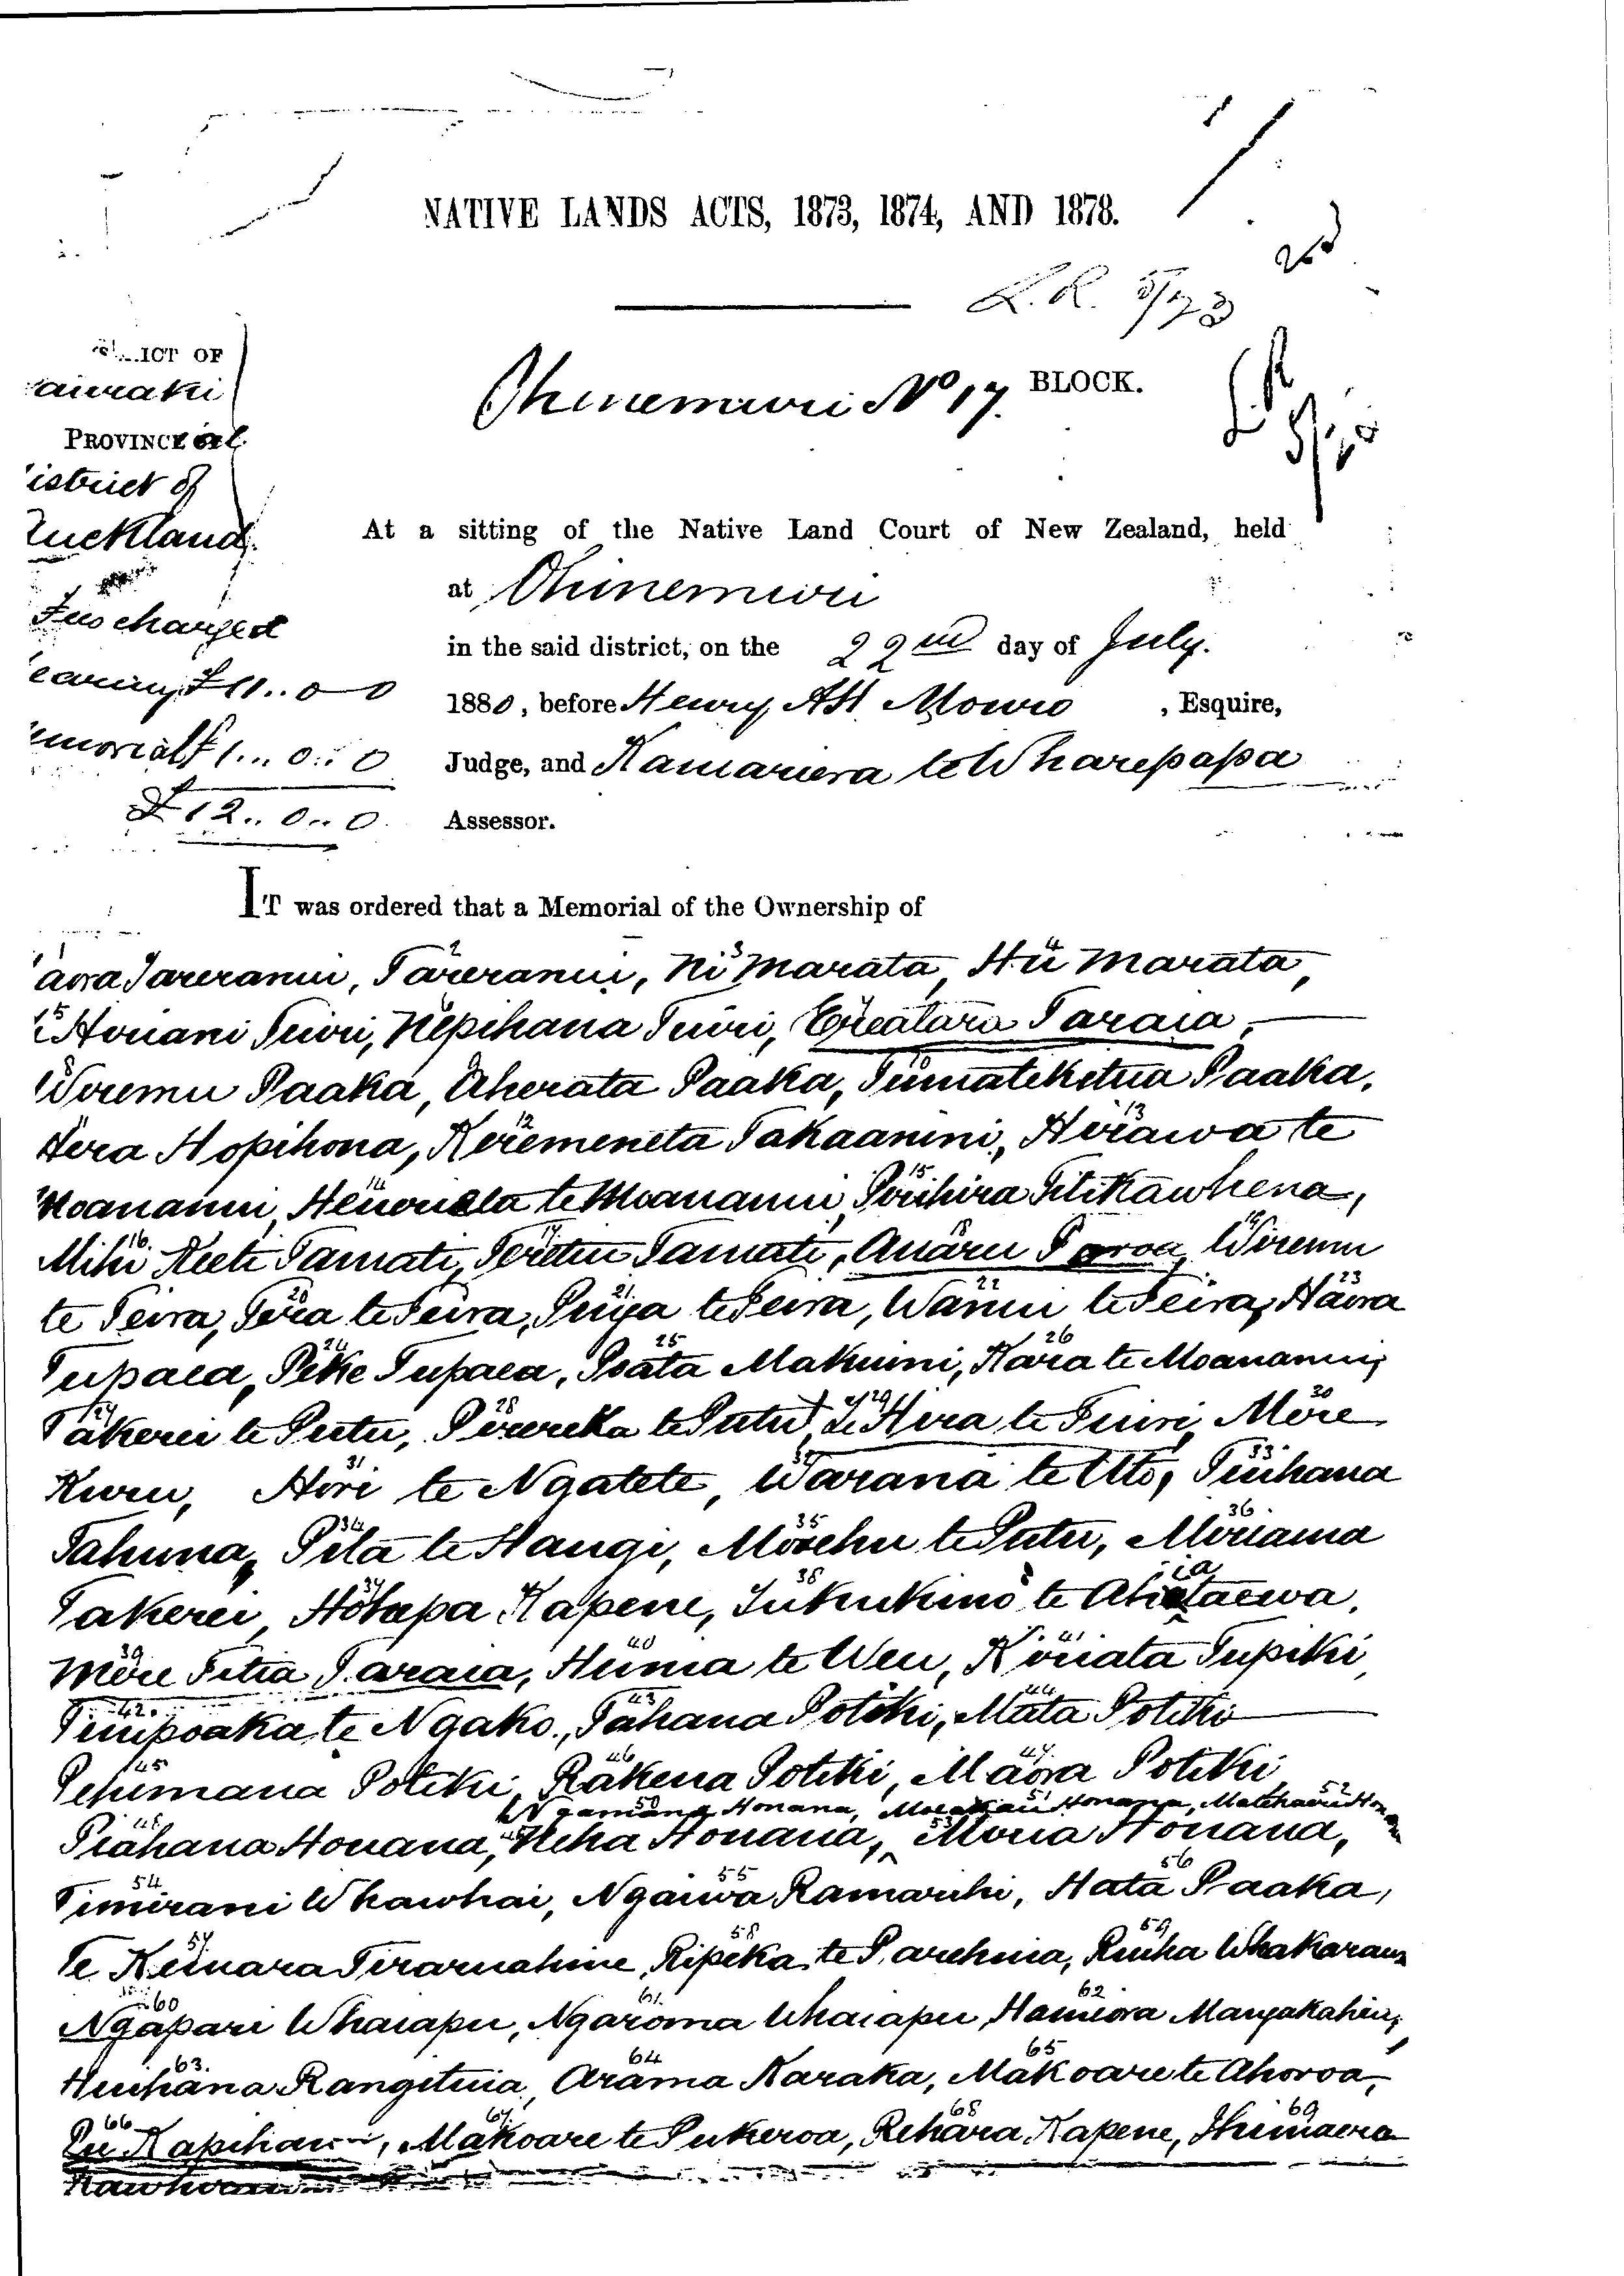 NATIVE LANDS ACTS, 1873, 1874, AND 1878.
L.R. 5/73
ICT OF
auraki
Ohinemuri No 17. BLOCK.
PROVINCE
istrict of
uckland
At a sitting of the Native Land Court of New Zealand, held
at Ohinemuri
Fees charged
in the said district, on the 22nd day of July.
earing £11..0-0
1880, before Henry AH Monro, Esquire,
emorial £1...0..0
Judge, and Kamariera te Wharepapa
£12..0..0
Assessor.
IT was ordered that a Memorial of the Ownership of
1 2 3 4
Tareranui, Tareranui, Ni Marata, Hii Marata,
5
Honani Tuiri, Nepihana Tuiri, Taraia,
Wiremu Paaka, Aherata Paaka, Paaka,
12 13
Hopihona, Keremeneta Takaanini, Hirawa te
14 15
Moananui, te Moananui, Pirihira Titikawhena,
16 17 18 19
Mihi Keete Tamati, Teretiu Tamati, Anaru Paroa, Wiremu
20 21 22 23
te Teira, Tera te Teira, Puija te Teira, Wanui te Teira, Haira
24 25 26
Tupaea, Pike Tupaea, Ihata Makuini, Kara te Moananui,
27 28 29 30
Takerei te Putu, Pirereka te Putu, Te Hira te Tuiri, Mere
31 32 33
Kuru, Hori te Ngatete, Warana te Uto, Tuihana
34 35 36
Tahuna, Pita te Hangi, Morehu te Putu, Miriama
37 38
Takerei, Hotapa Kapene, Tukukino te Ahiataewa,
39 40 41
Mere Titia Taraia, Huma te Weu, Koriata Tupiki,
42. 43 44
Timipoaka te Ngako., Tahana Potiki, Mata Potiki
45 46 47
Pehimana Potiki, Rakena Potiki, Maora Potiki
50 51 52
Ngamana Honana, Honana,
48 49 53
Piahana Honana, Heha Honana, Honana,
54 55 56
Timirani Whawhai, Ngaiwa Ramarihi, Hata Paaka,
57 58 59
Te Kuinara Tiraruahine, Ripeka te Parehuia, Riuha Whakarau
60 61. 62
Ngapari Whaiapu, Ngaroma Whaiapu, Hamiora Mangakahia,
63. 64 65
Huihana Rangituia, Arama Karaka, Makoare te Ahoroa,
66 67. 68 69
Kapihana, Makoare te Pukeroa, Rehara Kapene, Himaera